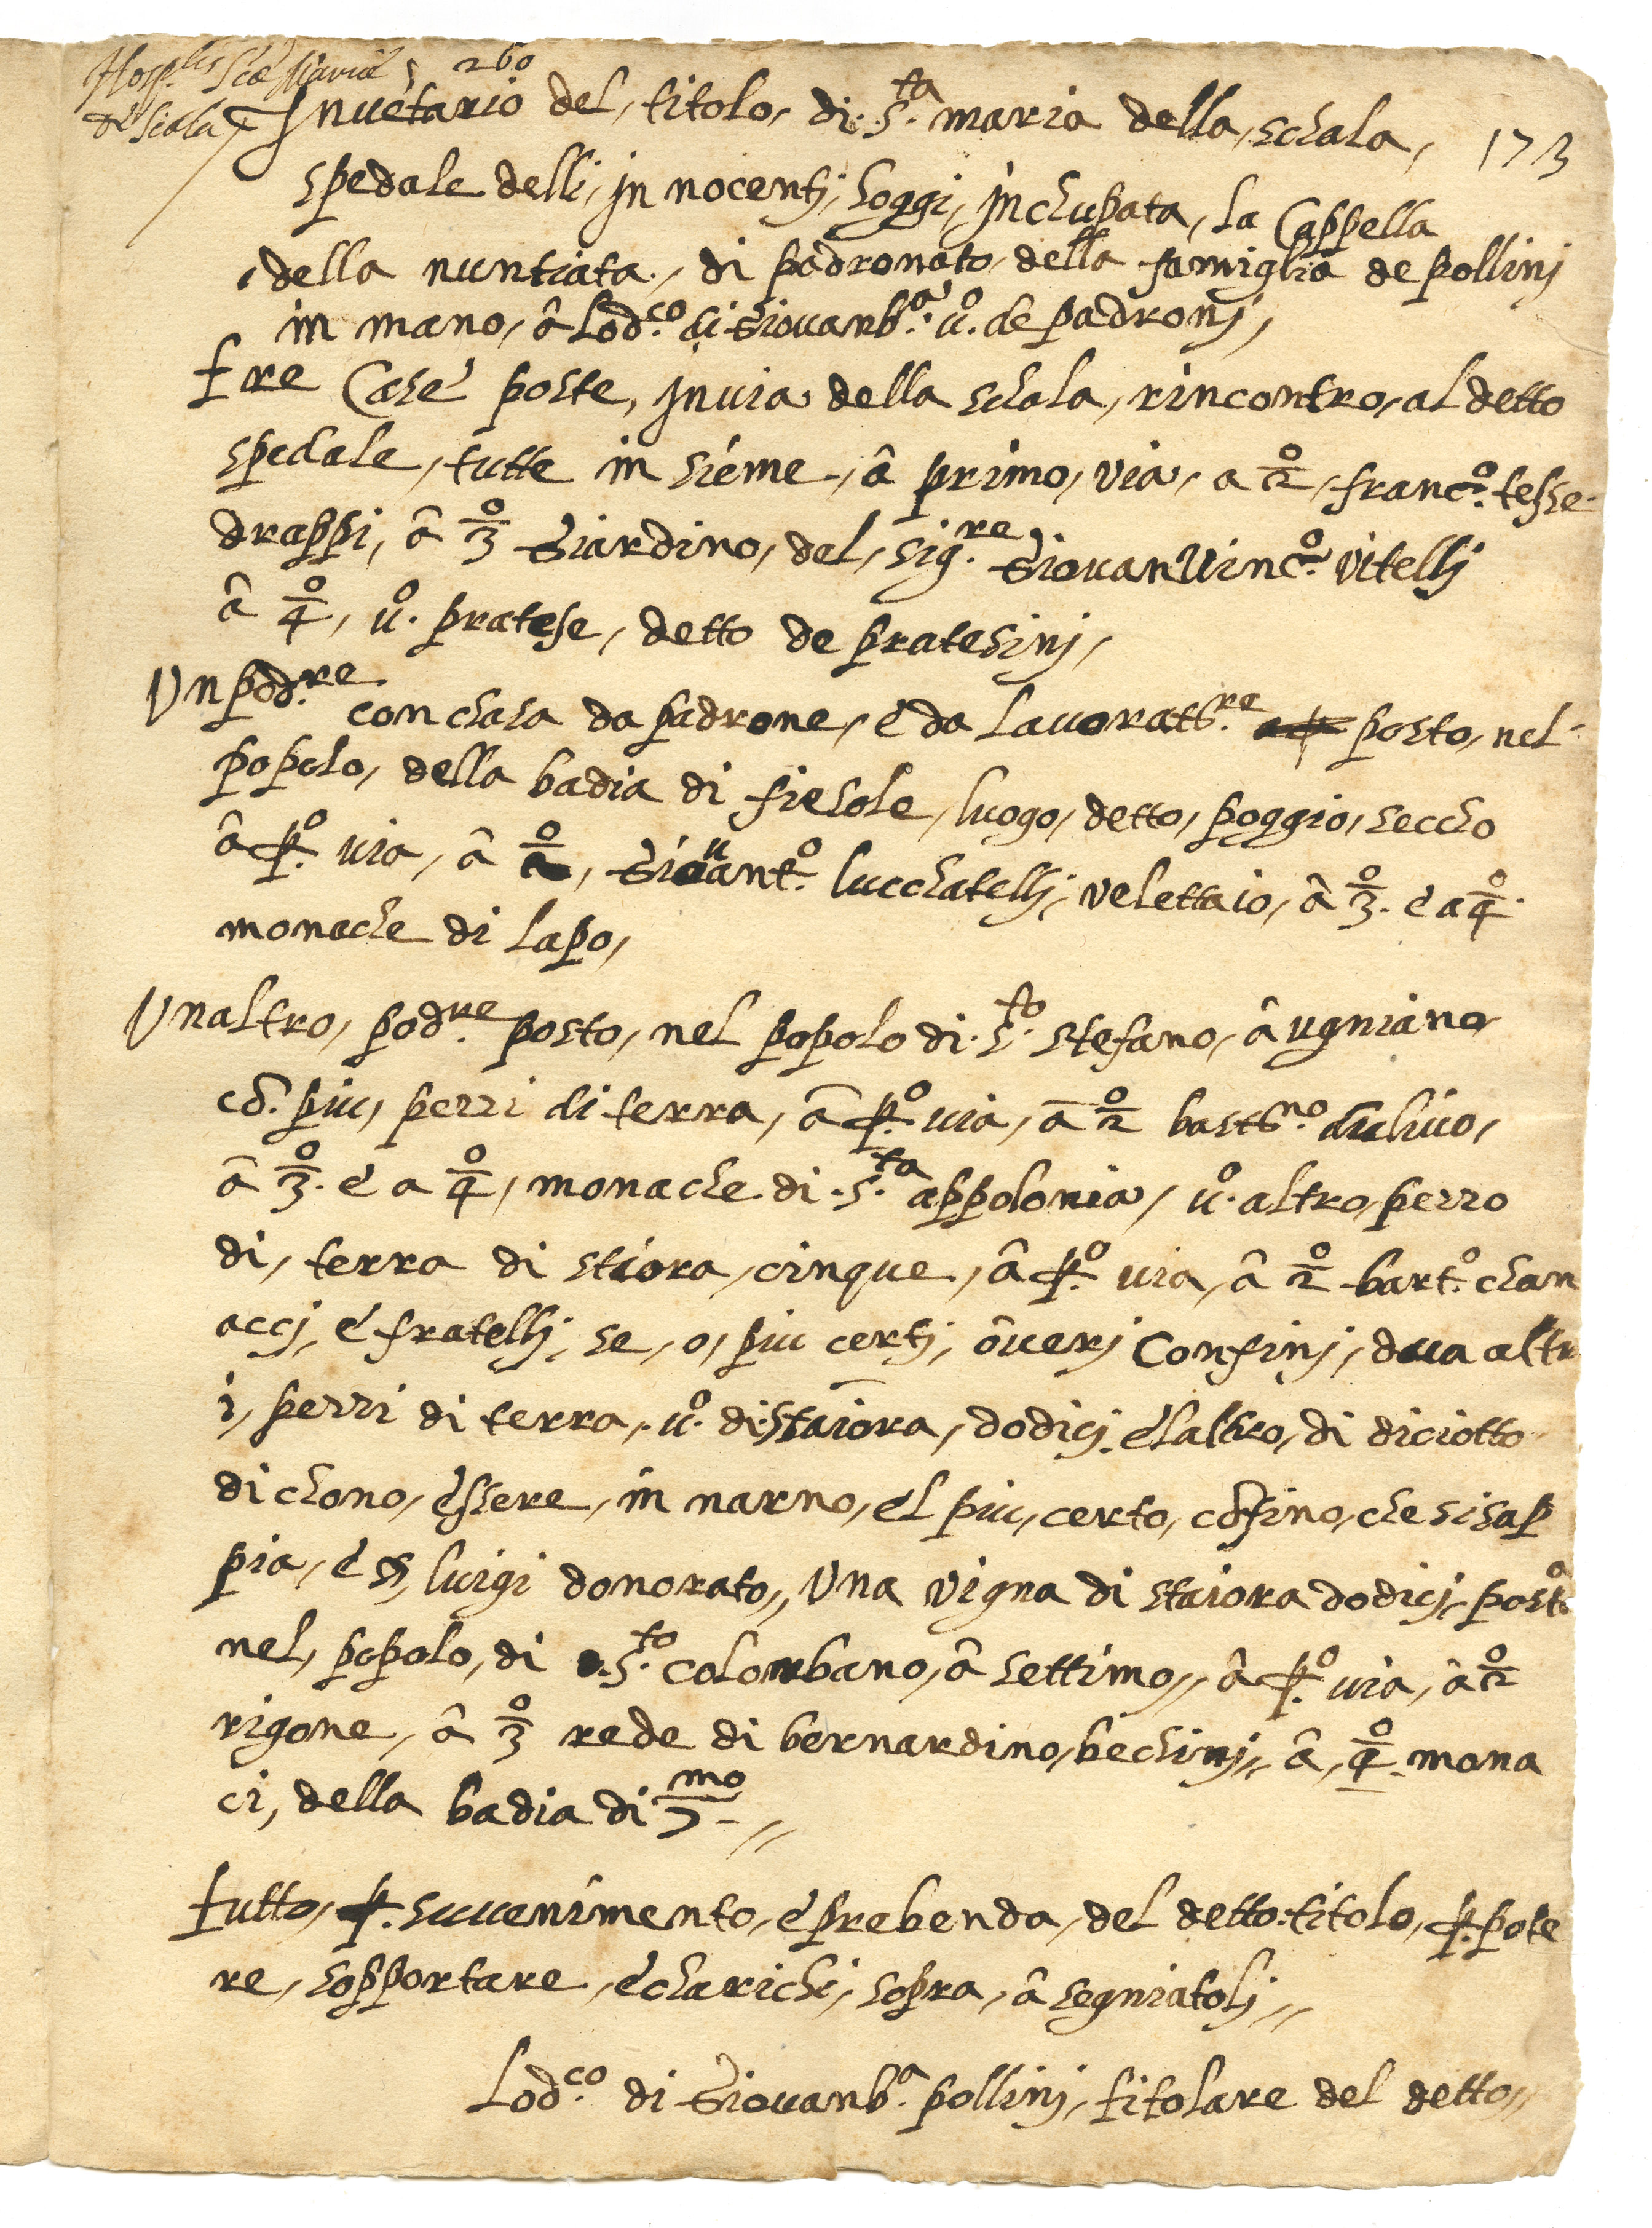 Hosp.lis Scę Mariæ 260
de Scala
Inuētario del, titolo, di .S.ta maria della, schala, 173
spedale delli, in nocentj, hoggi, inchupata, la Cappella
della nuntiata, di padronato, della famiglia de pollinj
in mano, â Lod.co di Giouanb.a u.o de padronj,
tre Case poste, in uia della schala, rincontro, al detto
spedale, tutte in sieme, â primo, via, a 2o, franc.o tesse
drappi, â 3o Giardino, del, sig.re Giouan Vinc.o vitellj
â 4o, u.o pratese, detto de pratesinj,
Vn pod.re con chasa da padrone, è da Lauoratt.re posto, nel
popolo, della badia di fiesole, luogo, detto, poggio, seccho
â p.o uia, â 2o, Giouant.o lucchatellj, velettaio, â 3o. è a 4o.
monache di Lapo,
Vnaltro, pod.re posto, nel popolo di .S.to stefano, â ugniano
cō. piu, pezzi di terra, â p.o uia, â 2o bastt.no duliuo,
â 3o. è a 4o, monache di .S.ta appolonia, u.o altro, pezzo
di, terra di stiora, cinque, â p.o uia, â 2o bart.o chan
accj, è fratellj, se, o, piu certj, ôuerj Confinj, dua altr
i, pezzi di terra, u.o di staiora, dodicj. è laltro, di diciotto
dichono, èssere, in narno, èl piu, certo, cōfino, che si sap
pia, è s, luigi donorato,, Vna vigna di staiora dodicj, posta
nel, popolo, di .S.to colombano, â settimo,, â p.o uia, â 2o
rigone, â 3o rede di bernardino, bechinj,, â, 4o. mona
ci, della badia di 7mo,,
tutto, p. suuenimento, è prebenda, del detto titolo, p. pote
re, sopportare, è charichi, sopra, â segniatolj,,
Lod.co di Giouanb.a pollinj, titolare del detto,,